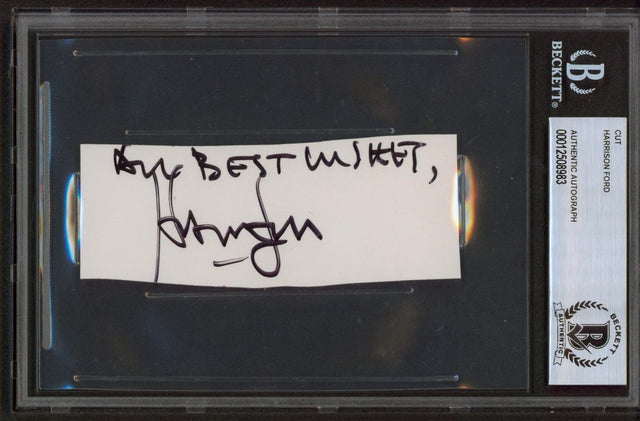 ALL BEST WISHES,
BECKETT®
CUT
HARRISON FORD
AUTHENTIC AUTOGRAPH
00012508983
BECKETT
AUTHENTIC